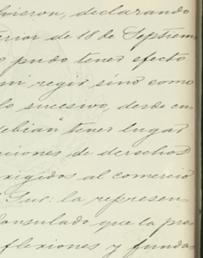 hicieron, declarando
terior de 18 de Septiem
o pudo tener efecto
ni regir sino como
lo sucesivo, desde cu
debian tener lugar
ciones de derechos
exigidos al comercio
Suc: la represen
Consulado que la pro
flexiones y funda